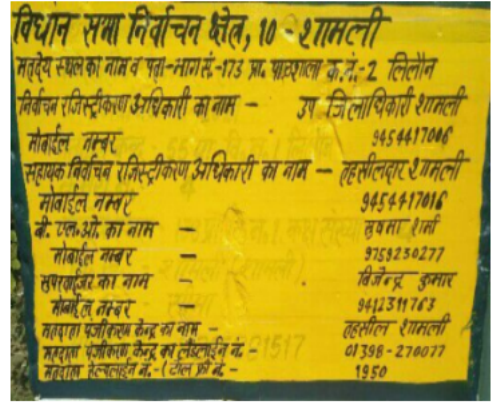 विधान सभा निर्वाचन क्षेत्र, 10 - शामली
मतदेय स्थल का नाम व पता - भाग सं. - 173 प्रा. पाठशाला क.नं. - 2 लिलौन
निर्वाचन रजिस्ट्रीकरण अधिकारी का नाम - उप जिलाधिकारी शामली
मोबाईल नम्बर 9454417006
सहायक निर्वाचन रजिस्ट्रीकरण अधिकारी का नाम - तहसीलदार शामली
मोबाईल नम्बर 9454417016
बी. एल. ओ. का नाम - सुषमा शर्मा
मोबाईल नम्बर - 9759230277
सुपरवाईजर का नाम - विजेन्द्र कुमार
मोबाईल नम्बर - 9412311763
मतदाता पंजीकरण केन्द्र का नाम - तहसील शामली
मतदाता पंजीकरण केन्द्र का लैंडलाईन नं. - 01398-270077
मतदाता हेल्पलाईन नं. - (टोल फ्री नं. - 1950